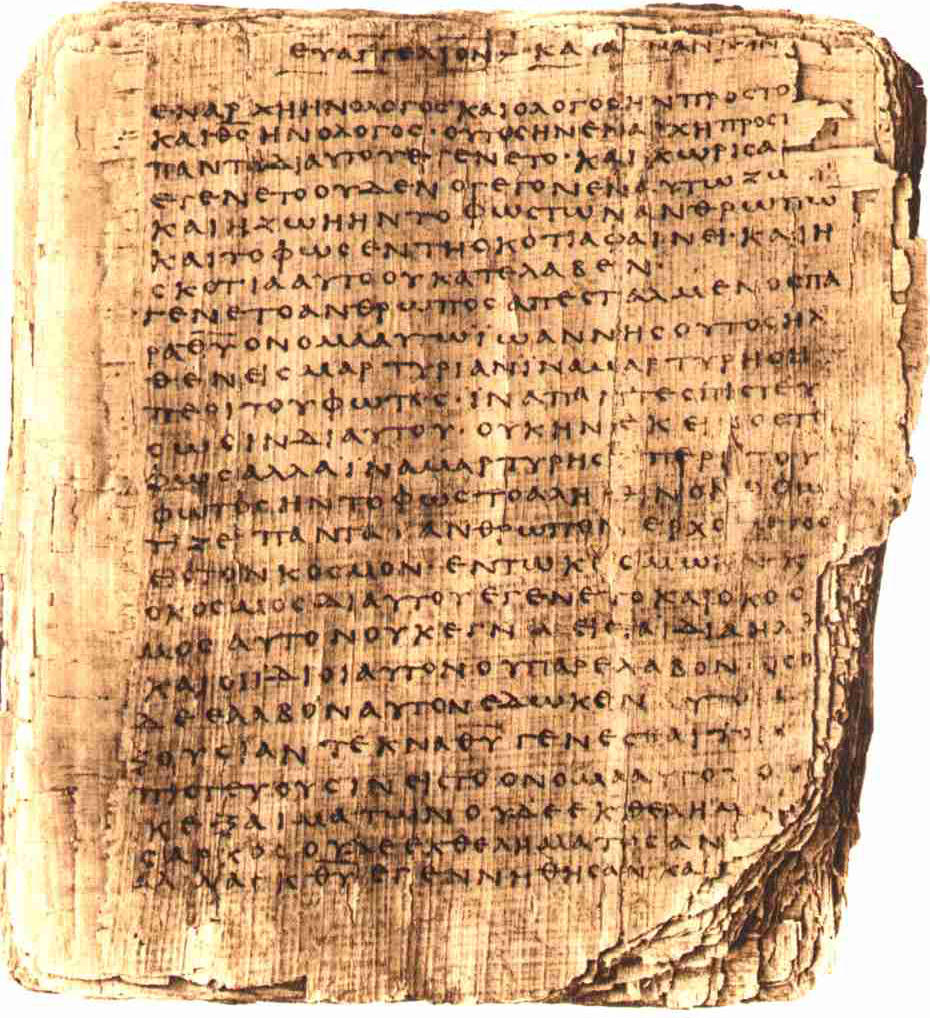 ΕΥΑΓΓΕΛΙΟΝ ΚΑΤΑ
ΕΝΑΡΧΗΗΝΟΛΟΓΟϹΚΑΙΟΛΟΓΟϹΗΝΠΡΟϹΤΟ
ΚΑΙΘ̅Ϲ̅ΗΝΟΛΟΓΟϹ·ΟΥΤΟϹΗΝΕΝΑΡΧΗΠΡΟϹΤ
ΠΑΝΤΑΔΙΑΥΤΟΥΕΓΕΝΕΤΟ·ΚΑΙΧΩΡΙϹΑ
ΕΓΕΝΕΤΟΟΥΔΕΝΟΓΕΓΟΝΕΝΑΥΤΩΖΩ
ΚΑΙΗΖΩΗΗΝΤΟΦΩϹΤΩΝΑΝΘΡΩΠΩ
ΚΑΙΤΟΦΩϹΕΝΤΗϹΚΟΤΙΑΦΑΙΝΕΙ·ΚΑΙΗ
ϹΚΟΤΙΑΑΥΤΟΟΥΚΑΤΕΛΑΒΕΝ·
ΓΕΝΕΤΟΑΝΘΡΩΠΟϹΑΠΕϹΤΑΛΜΕΝΟϹΠΑ
ΡΑΘ̅Υ̅ΟΝΟΜΑΑΥΤΩΙΩΑΝΝΗϹΟΥΤΟϹΗΛ
ΘΕΝΕΙϹΜΑΡΤΥΡΙΑΝΙΝΑΜΑΡΤΥΡΗϹΗ
ΠΕΡΙΤΟΥΦΩΤΟϹ·ΙΝΑΠΑΝΤΕϹΠΙϹΤΕΥ
ϹΩϹΙΝΔΙΑΥΤΟΥ·ΟΥΚΗΝΕΚΕΙΝΟϹΤΟ
ΦΩϹΑΛΛΑΙΝΑΜΑΡΤΥΡΗϹΗΠΕΡΙΤΟΥ
ΦΩΤΟϹΗΝΤΟΦΩϹΤΟΑΛΗΘΙΝΟΝΟΦΩ
ΤΙΖΕΙΠΑΝΤΑΑΝΘΡΩΠΟΝΕΡΧΟΜΕΝΟΝ
ΕΙϹΤΟΝΚΟϹΜΟΝ·ΕΝΤΩΚΟϹΜΩΗΝΚΑΙ
ΟΚΟϹΜΟϹΔΙΑΥΤΟΥΕΓΕΝΕΤΟΚΑΙΟΚΟϹ
ΜΟϹΑΥΤΟΝΟΥΚΕΓΝΩΕΙϹΤΑΙΔΙΑΗΛΘ
ΚΑΙΟΙΙΔΙΟΙΑΥΤΟΝΟΥΠΑΡΕΛΑΒΟΝ·ΟϹΟΙ
ΔΕΕΛΑΒΟΝΑΥΤΟΝΕΔΩΚΕΝΑΥΤΟΙϹΕ
ΞΟΥϹΙΑΝΤΕΚΝΑΘ̅Υ̅ΓΕΝΕϹΘΑΙΤΟΙϹ
ΠΙϹΤΕΥΟΥϹΙΝΕΙϹΤΟΟΝΟΜΑΑΥΤΟΥΟΙ
ΚΕΞΑΙΜΑΤΩΝΟΥΔΕΕΚΘΕΛΗΜΑ
ϹΑΡΚΟϹΟΥΔΕΕΚΘΕΛΗΜΑΤΟϹΑΝ
ΑΛΛΑΕΚΘ̅Υ̅ΕΓΕΝΝΗΘΗϹΑΝΚΑΙ